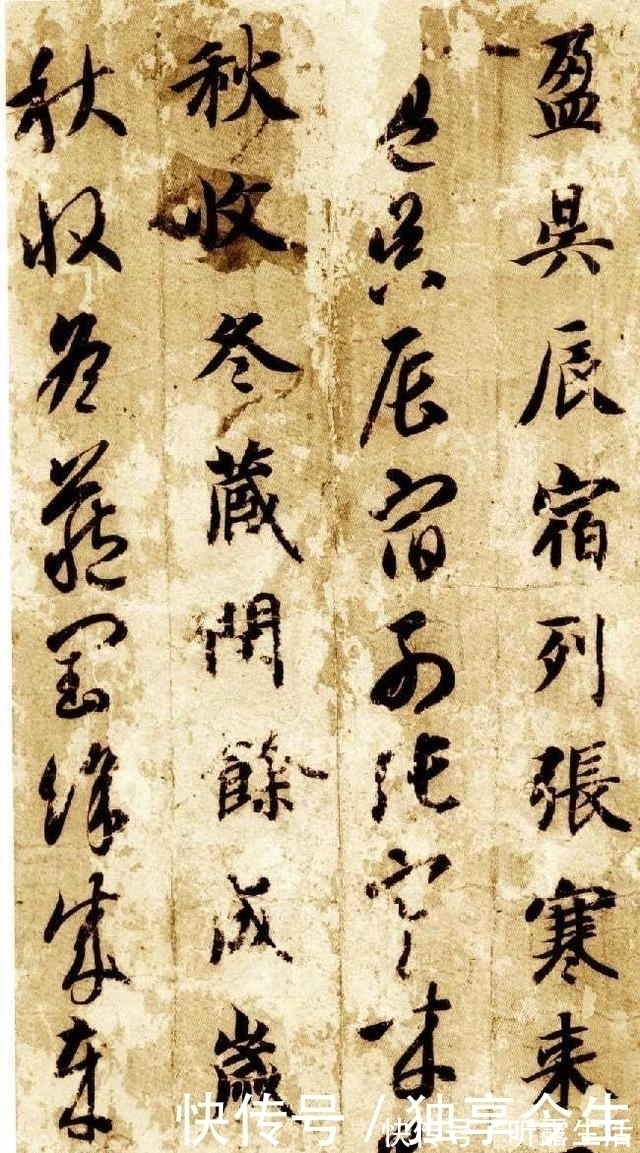 盈昃辰宿列張寒来
盈昃辰宿列張寒来
秋收冬藏閏餘成歲
秋收冬藏閏餘成歲
快传号 / 独享余生
快传号 / 听露生活